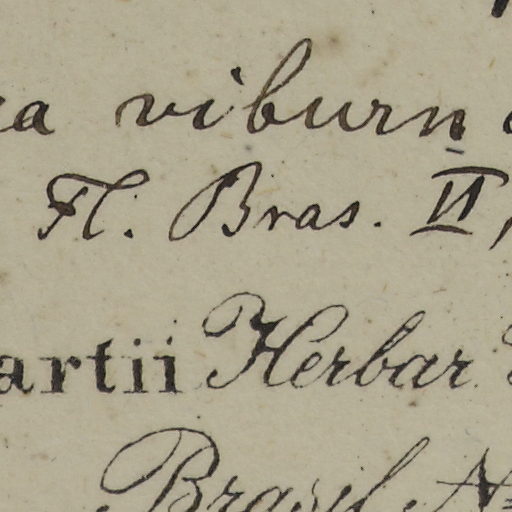 viburn
Fl. Bras. II,
artii Herbar
Brasil N